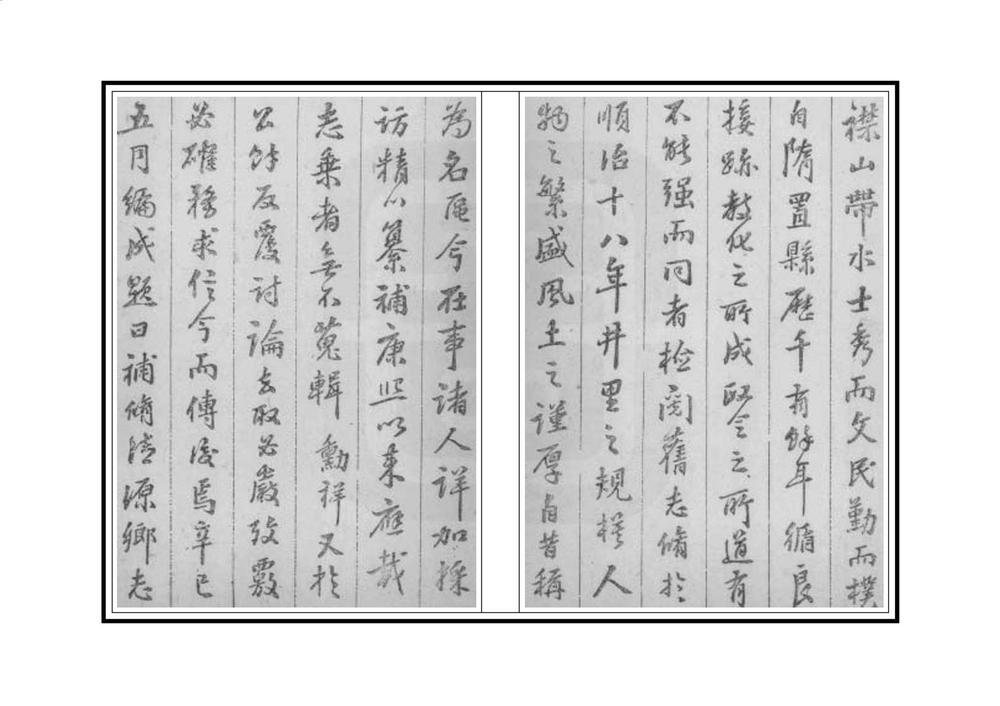 襟山帶水士秀而文民勤而樸
自隋置縣歷千有餘年循良
接跡教化之所成政令之所道有
不能强而同者檢閱舊志脩於
順治十八年井里之規模人
物之繁盛風土之謹厚自昔稱
為名區今在事諸人詳加採
訪精以纂補康熙以來應載
志乗者無不蒐輯勳祥又於
公餘反覆討論去取必嚴攷覈
必確務求信今而傳後焉辛巳
五月編成題曰補脩清源鄉志